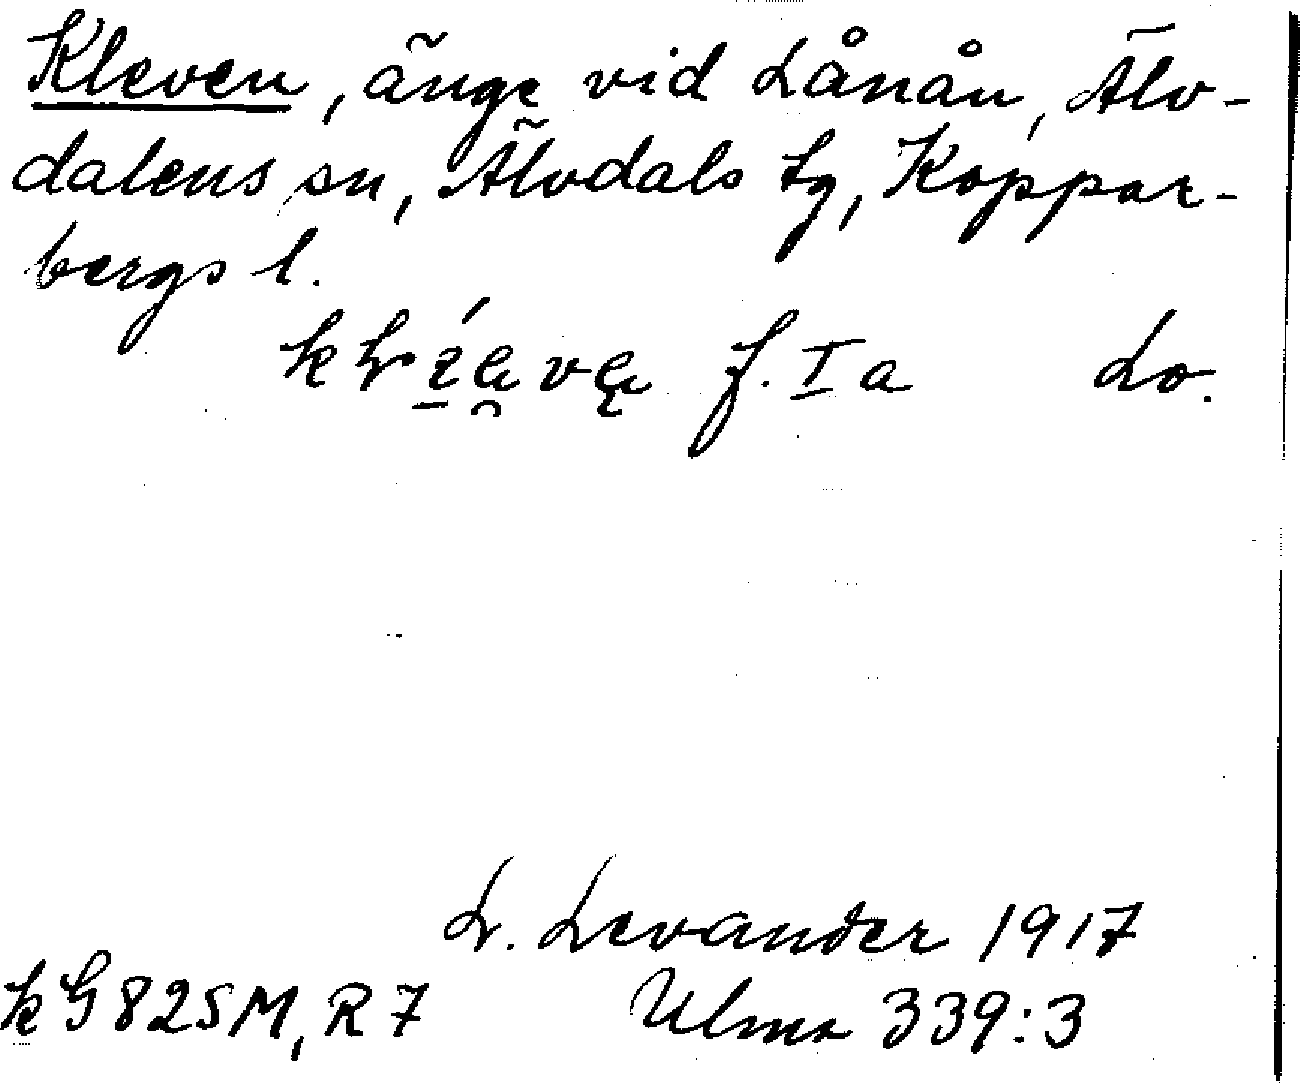 Kleven, änge vid Lånån, Älv-
dalens sn, Älvdals tg, Koppar-
bergs l.
f. I a Lo.
L. Levander 1917
kG82SM, R7 Ulma 339:3